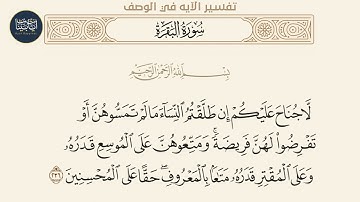 تفسير الآيه في الوصف
سُورَةُ البَقَرَةِ
بِسْمِ اللَّهِ الرَّحْمَٰنِ الرَّحِيمِ
لَّا جُنَاحَ عَلَيْكُمْ إِن طَلَّقْتُمُ النِّسَاءَ مَا لَمْ تَمَسُّوهُنَّ أَوْ
تَفْرِضُوا لَهُنَّ فَرِيضَةً ۚ وَمَتِّعُوهُنَّ عَلَى الْمُوسِعِ قَدَرُهُ
وَعَلَى الْمُقْتِرِ قَدَرُهُ مَتَاعًا بِالْمَعْرُوفِ ۖ حَقًّا عَلَى الْمُحْسِنِينَ ٢٣٦